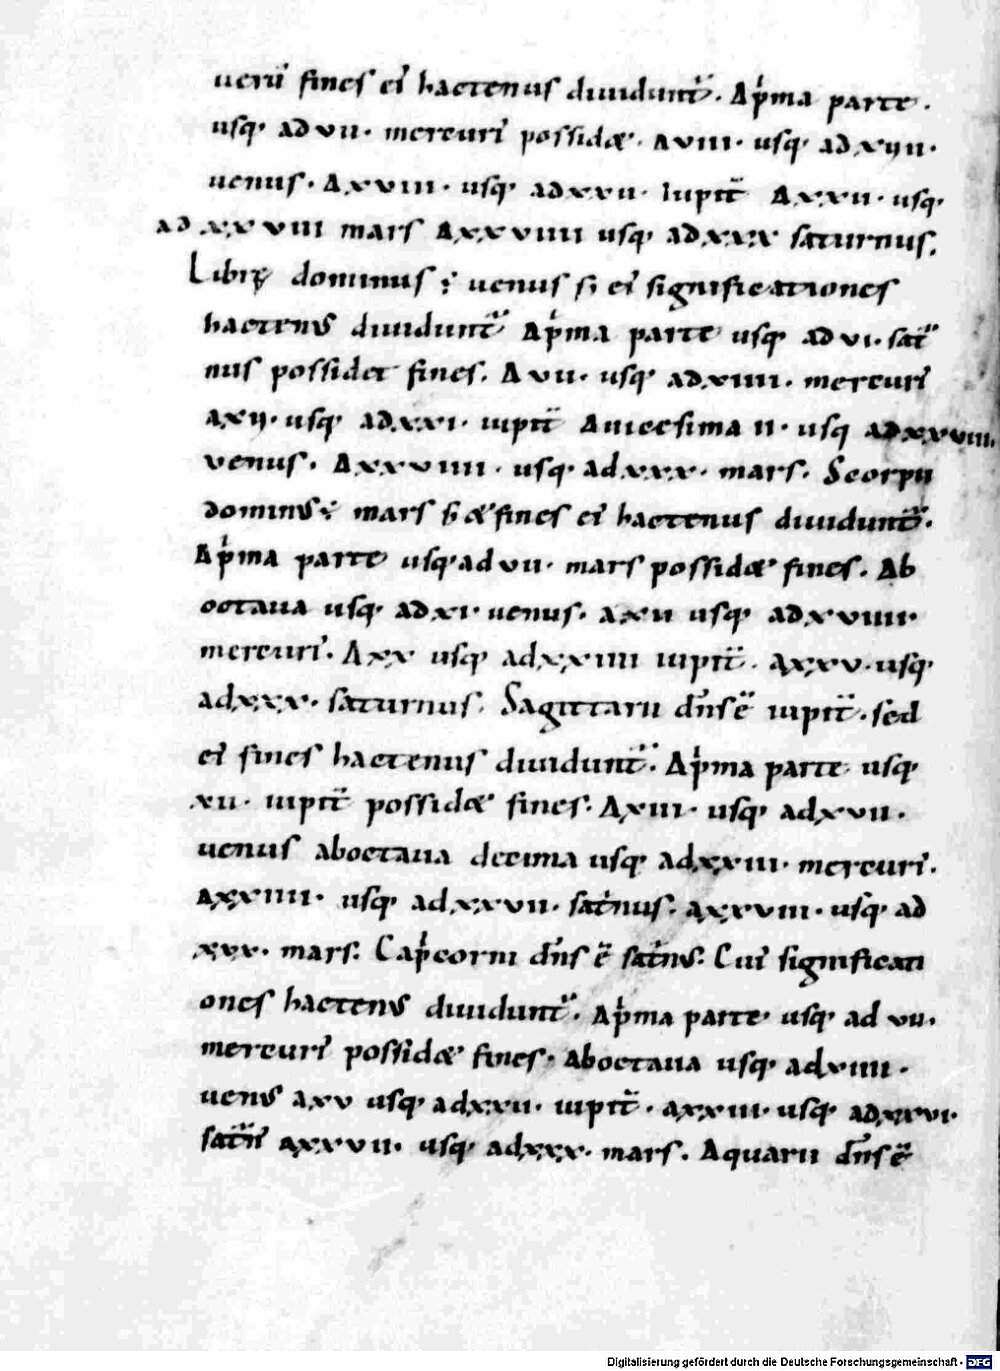 uerū fines ei᷒ hactenus diuidunt᷑. Ap̍ma parte.
usq; ad vii. mercuri᷒ possidæ. A viii. usq; ad xvii.
uenus. A xviii. usq; ad xxii. Iupit̄ A xxii. usq;
ad xxviii mars A xxviiii usq; ad xxx saturnus.
Librę dominus ÷ uenus s; ei᷒ significationes
hacten᷒ diuidunt᷑ Ap̍ma parte usq; ad vi. sat̄
nus possidet fines. A vii. usq; ad xiiii. mercuri᷒
A xv. usq; ad xxi. iupit̄ A uicesima ii. usq; ad xxviii.
uenus. A xxviiii. usq; ad xxx. mars. Scorpii
domin᷒ ÷ mars s; & fines ei᷒ hactenus diuidunt᷑.
Ap̍ma parte usq; ad vii. mars possidæ fines. Ab
octaua usq; ad xi. uenus. A xii usq; ad xviiii.
mercuri᷒. A xx usq; ad xxiiii iupit̄. A xxv. usq;
ad xxx. saturnus. Sagittarii dn̄s ē iupit̄. sed
ei᷒ fines hactenus diuidunt᷑. Ap̍ma parte usq;
xii. iupit̄ possidæ fines. A xiii. usq; ad xvii.
uenus ab octaua decima usq; ad xxiii. mercuri᷒.
A xxiiii. usq; ad xxvii. sat̄nus. A xxviii. usq; ad
xxx. mars. Cap̍corni dn̄s ē sat̄n᷒. Cui᷒ significati
ones hacten᷒ diuidunt᷑. Ap̍ma parte usq; ad vii.
mercuri᷒ possidæ fines. Ab octaua usq; ad xiiii.
uen᷒ A xv usq; ad xxii. iupit̄. A xxiii. usq; ad xxvi.
sat̄n᷒ A xxvii. usq; ad xxx. mars. Aquarii dn̄s ē
Digitalisierung gefördert durch die Deutsche Forschungsgemeinschaft - DFG